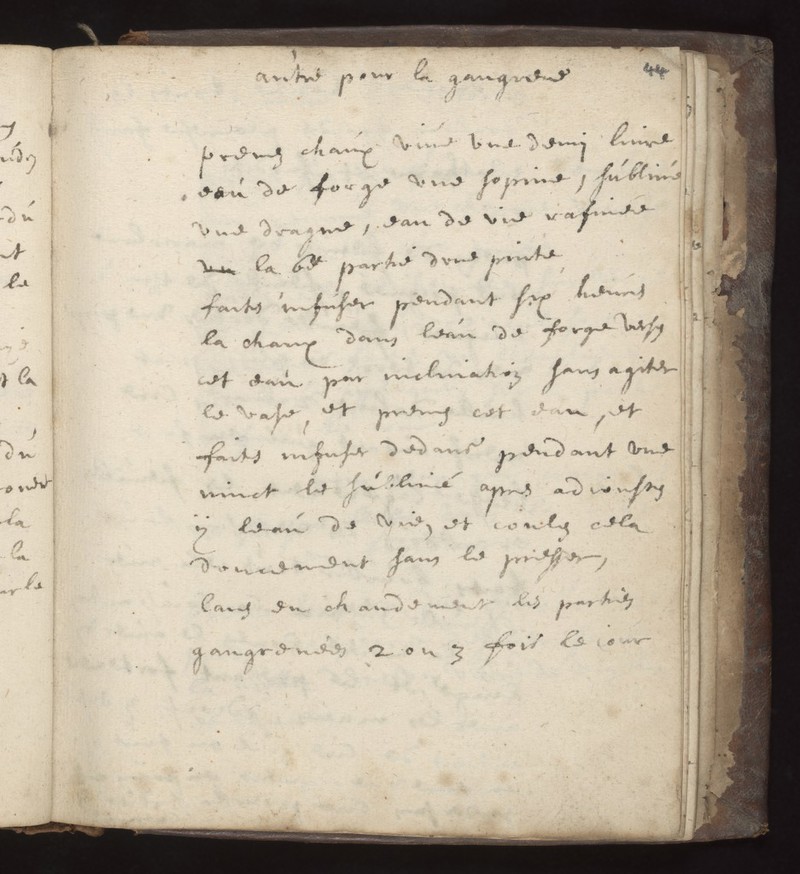 autre pour la gangrene
44
prenez chaux vive une demi livre
eau de forge une sopine, sublimé
une dragme, eau de vie rafinée
la 6e partie d'une pinte
faites infuser pendant six heures
la chaux dans leau de forge versez
cet eau par inclination sans agiter
le vase, et prenez cet eau, et
faites infuser dedans pendant une
nuict le sublimé apres adioustez
ÿ leau de vie, et coulez cela
doucement sans le presser,
lavez en chaudement les parties
gangrenées 2 ou 3 fois le iour
du
le
la
du
la
la